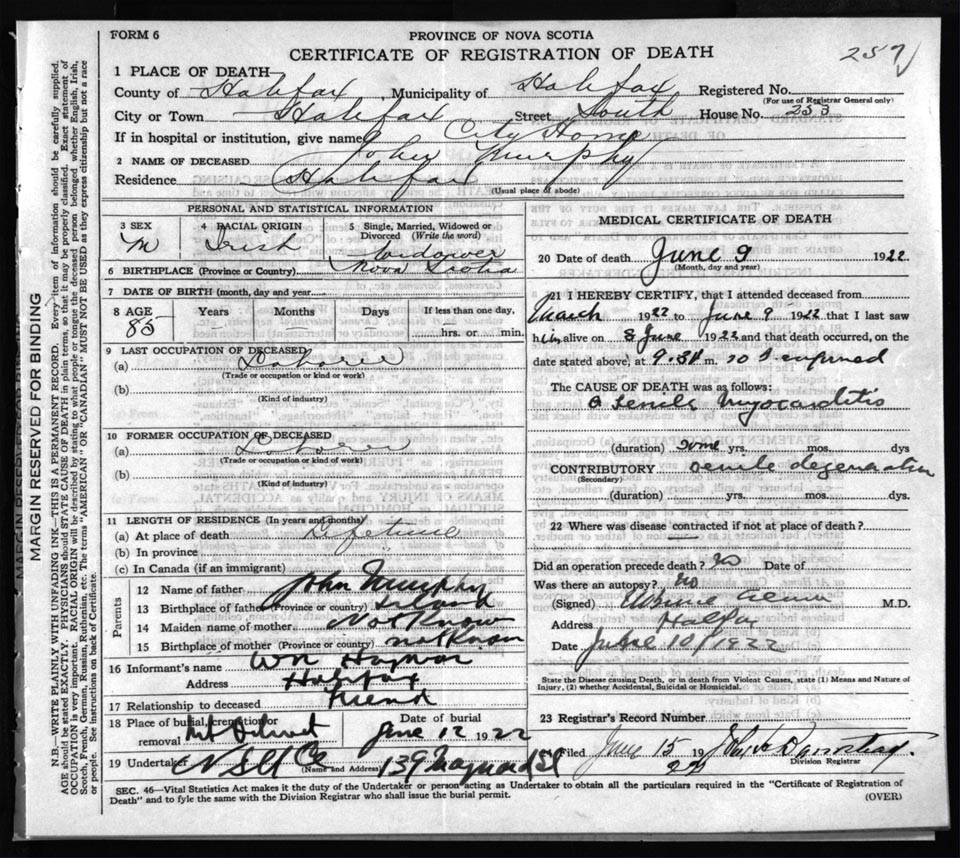 FORM 6
PROVINCE OF NOVA SCOTIA
CERTIFICATE OF REGISTRATION OF DEATH
257
1 PLACE OF DEATH
County of Halifax, Municipality of Halifax Registered No.
(For use of Registrar General only)
City or Town Halifax Street South House No. 253
If in hospital or institution, give name City Home
2 NAME OF DECEASED John Murphy
Residence Halifax
(Usual place of abode)
PERSONAL AND STATISTICAL INFORMATION
3 SEX M
4 RACIAL ORIGIN Irish
5 Single, Married, Widowed or Divorced (Write the word) widower
6 BIRTHPLACE (Province or Country) Nova Scotia
7 DATE OF BIRTH (month, day and year)
8 AGE 85 Years Months Days If less than one day, hrs. or min.
9 LAST OCCUPATION OF DECEASED
(a)
(Trade or occupation or kind of work)
(b)
(Kind of industry)
10 FORMER OCCUPATION OF DECEASED
(a)
(Trade or occupation or kind of work)
(b)
(Kind of industry)
11 LENGTH OF RESIDENCE (In years and months)
(a) At place of death Lifetime
(b) In province
(c) In Canada (if an immigrant)
Parents
12 Name of father John Murphy
13 Birthplace of father (Province or country) Ireland
14 Maiden name of mother Not Know
15 Birthplace of mother (Province or country) not Know
16 Informant's name Wm
Address Halifax
17 Relationship to deceased Friend
18 Place of burial, cremation or removal Mt Olivet
Date of burial June 12 1922
19 Undertaker N S U Co (Name and Address) 139 Maynard St
MEDICAL CERTIFICATE OF DEATH
20 Date of death June 9 1922
(Month, day and year)
21 I HEREBY CERTIFY, that I attended deceased from
March 1922 to June 9 1922 that I last saw
him alive on 8 June 1922 and that death occurred, on the
date stated above, at 9.30 m.
The CAUSE OF DEATH was as follows:
Senile Myocarditis
(duration) some yrs. mos. dys
CONTRIBUTORY senile degeneration
(Secondary)
(duration) yrs. mos. dys.
22 Where was disease contracted if not at place of death?
Did an operation precede death? no Date of
Was there an autopsy? no
(Signed) M.D.
Address Halifax
Date June 10/1922
State the Disease causing Death, or in death from Violent Causes, state (1) Means and Nature of Injury, (2) whether Accidental, Suicidal or Homicidal.
23 Registrar's Record Number
Filed June 15 1922
Division Registrar
SEC. 46—Vital Statistics Act makes it the duty of the Undertaker or person acting as Undertaker to obtain all the particulars required in the "Certificate of Registration of
Death" and to fyle the same with the Division Registrar who shall issue the burial permit.
(OVER)
MARGIN RESERVED FOR BINDING
N.B—WRITE PLAINLY WITH UNFADING INK—THIS IS A PERMANENT RECORD. Every item of information should be carefully supplied.
AGE should be stated EXACTLY. PHYSICIANS should STATE CAUSE OF DEATH in plain terms, so that it may be properly classified. Exact statement of
OCCUPATION is very important. RACIAL ORIGIN will be described by stating to what people or tongue the deceased person belonged whether English, Irish,
Scotch, French, German, Russian, Ruthenian, etc. The terms "AMERICAN" OR "CANADIAN" MUST NOT BE USED as they express citizenship but not a race
or people. See instructions on back of Certificate.